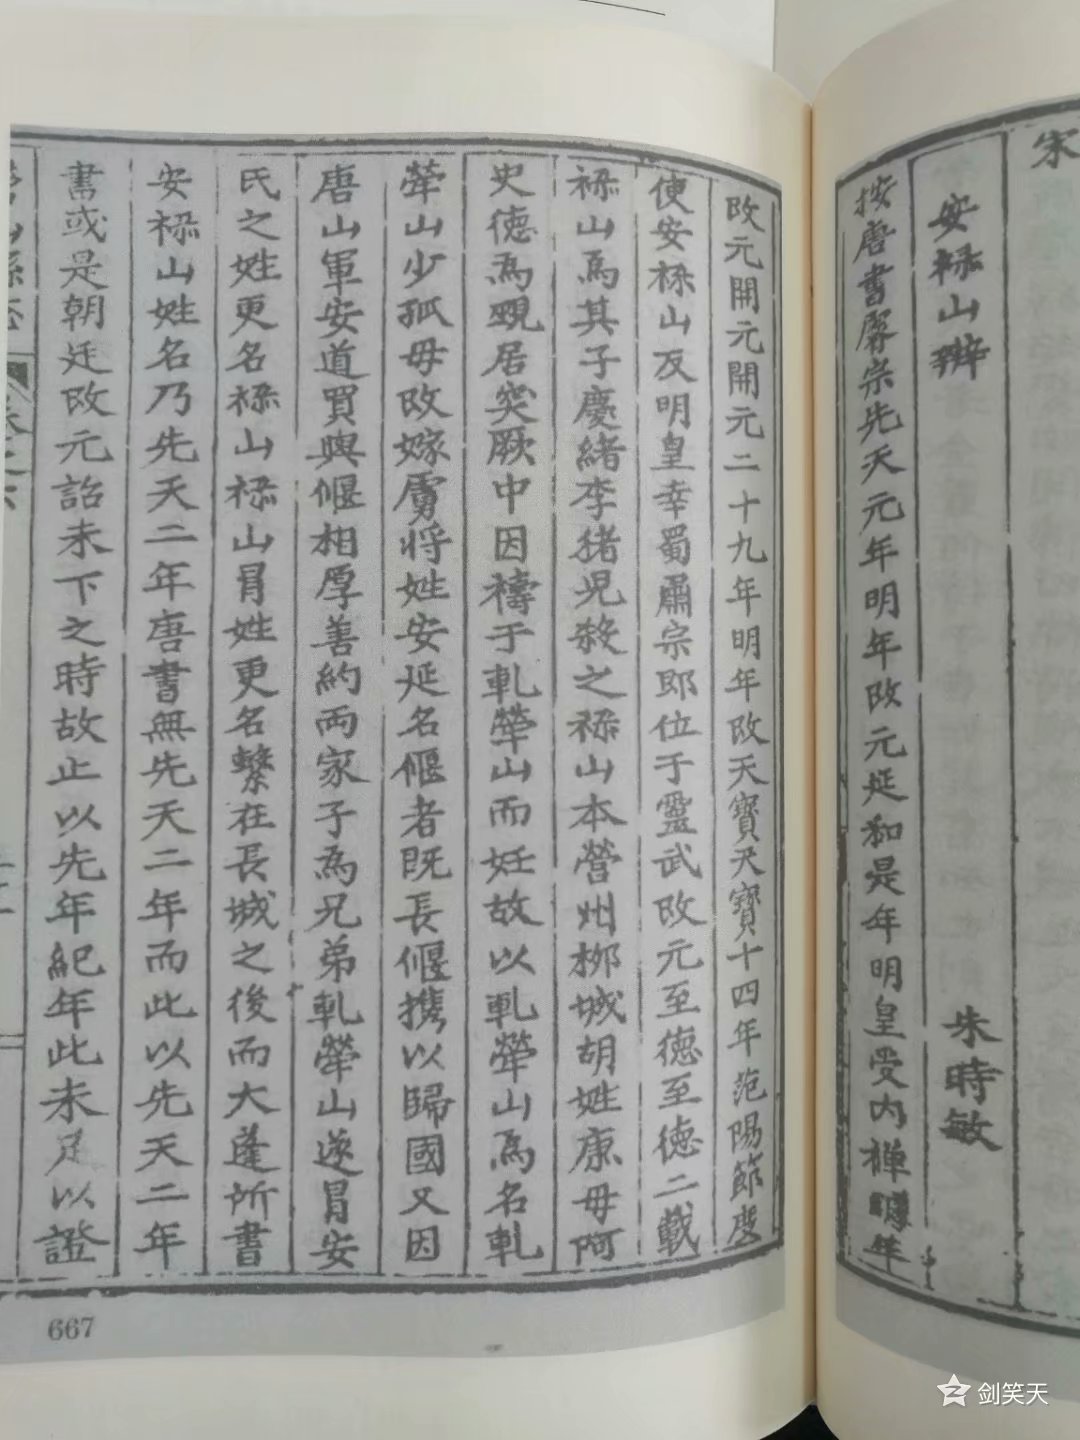 宋
安祿山辨
朱時敏
按唐書睿宗先天元年明年改元延和是年明皇受内禪明年
改元開元開元二十九年明年改天寶天寶十四年范陽節度
使安祿山反明皇幸蜀肅宗即位于靈武改元至德至德二載
祿山為其子慶緒李猪兒殺之祿山本營州柳城胡姓康母阿
史德為覡居突厥中因禱于軋犖山而妊故以軋犖山為名軋
犖山少孤母改嫁虜將姓安延名偃者既長偃携以歸國又因
唐山軍安道買與偃相厚善約兩家子為兄弟軋犖山遂冒安
氏之姓更名祿山祿山冒姓更名繫在長城之後而大蓬所書
安祿山姓名乃先天二年唐書無先天二年而此以先天二年
書或是朝廷改元詔未下之時故止以先年紀年此未足以證
卷之六
667
剑笑天